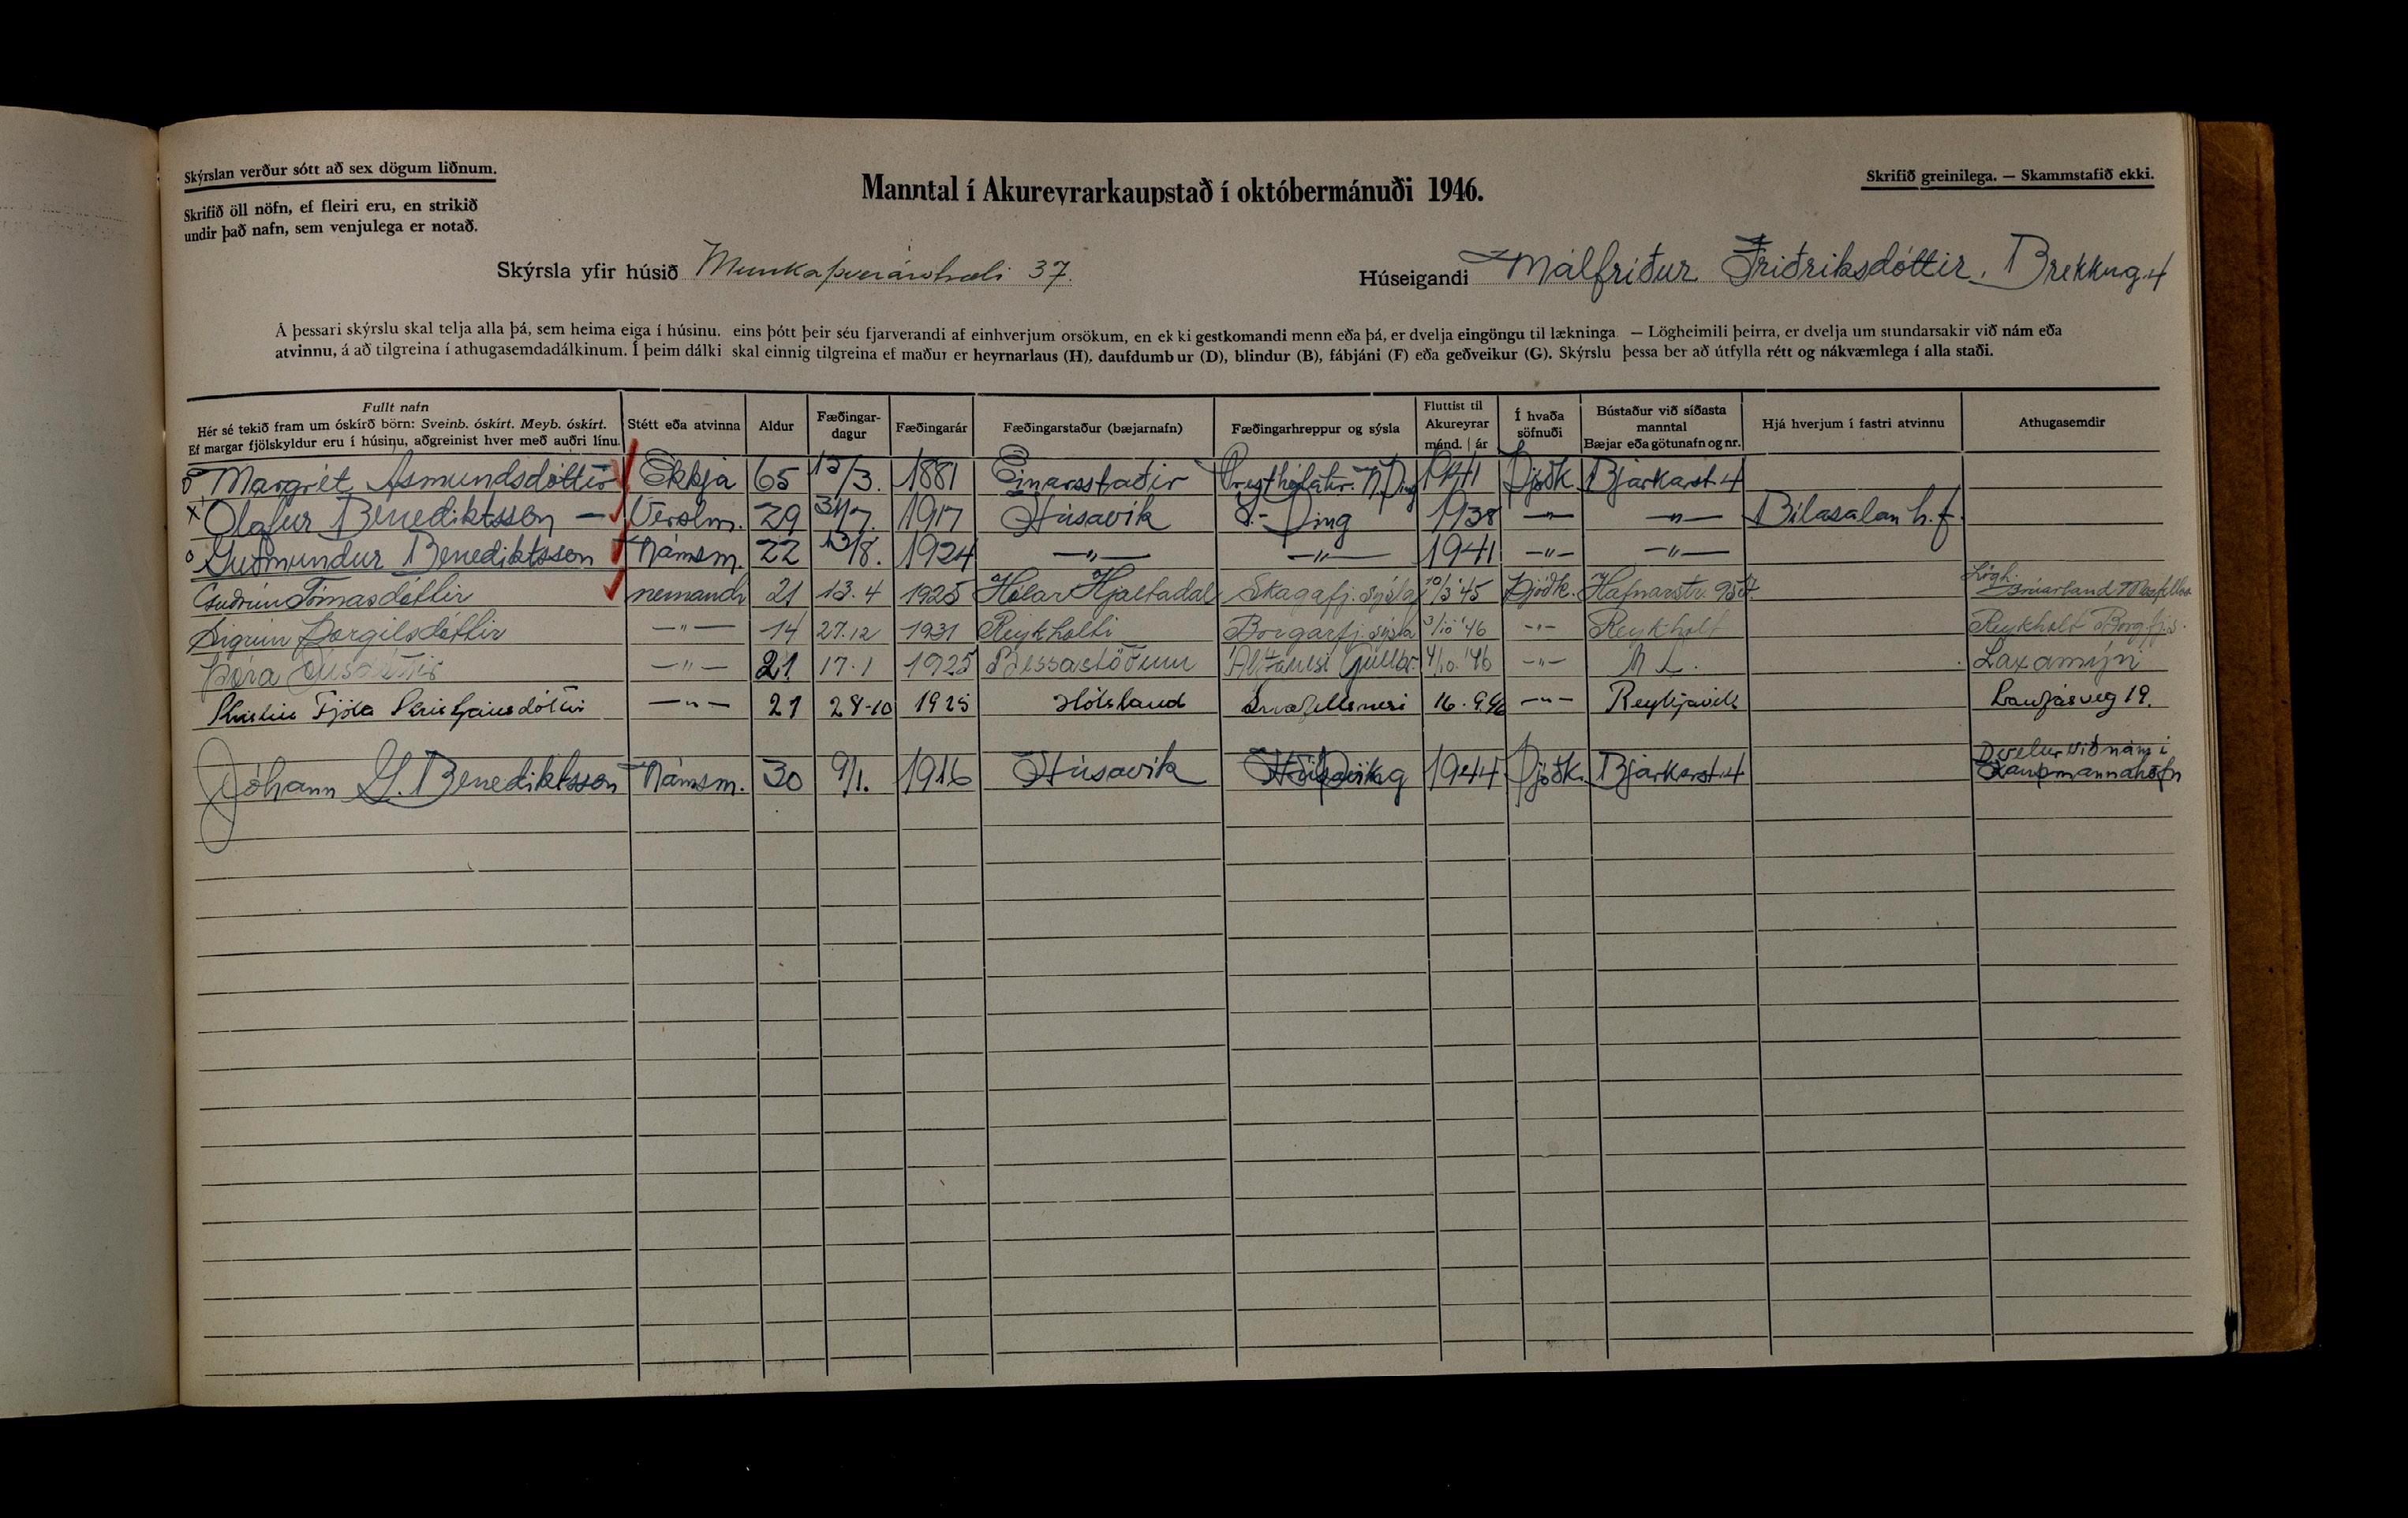 Skýrslan verður sótt að sex dögum liðnum.
Skrifið öll nöfn, ef fleiri eru, en strikið
undir það nafn, sem venjulega er notað.
Manntal í Akureyrarkaupstað í októbermánuði 1946.
Skrifið greinilega. — Skammstafið ekki.
Skýrsla yfir húsið Munkaþverárstræti 37.
Húseigandi Málfríður Friðriksdóttir. Brekkug. 4
Á þessari skýrslu skal telja alla þá, sem heima eiga í húsinu. eins þótt þeir séu fjarverandi af einhverjum orsökum, en ekki gestkomandi menn eða þá, er dvelja eingöngu til lækninga. — Lögheimili þeirra, er dvelja um stundarsakir við nám eða
atvinnu, á að tilgreina í athugasemdadálkinum. Í þeim dálki skal einnig tilgreina ef maður er heyrnarlaus (H), daufdumbur (D), blindur (B), fábjáni (F) eða geðveikur (G). Skýrslu þessa ber að útfylla rétt og nákvæmlega í alla staði.
Fullt nafn
Hér sé tekið fram um óskírð börn: Sveinb. óskírt. Meyb. óskírt.
Ef margar fjölskyldur eru í húsinu, aðgreinist hver með auðri línu.
Stétt eða atvinna
Aldur
Fæðingar-
dagur
Fæðingarár
Fæðingarstaður (bæjarnafn)
Fæðingarhreppur og sýsla
Fluttist til
Akureyrar
mánd. | ár
Í hvaða
söfnuði
Bústaður við síðasta
manntal
Bæjar eða götunafn og nr.
Hjá hverjum í fastri atvinnu
Athugasemdir
Margrét Ásmundsdóttir Ekkja 65 13/3. 1881 Einarsstaðir Presthólahr. N. Þing 1941 Þjóðk. Bjarkarst. 4
x Ólafur Benediktsson — Verslm. 29 31/7. 1917 Húsavík S.- Þing 1938 —"— —"— Bílasalan h.f.
o Guðmundur Benediktsson Námsm. 22 13/8. 1924 —"— —"— 1941 —"— —"—
Guðrún Tómasdóttir nemandi 21 13.4 1925 Hólar Hjaltadal Skagafj. sýsla 10/3 '45 Þjóðk. Hafnarstr. Lögh. Brúarland Mosfellss.
Sigrún Þorgilsdóttir —"— 14 27.12 1931 Reykholti Borgarfj. sýsla 3/10 '46 —"— Reykholt Reykholt Borgfj.s.
Þóra —"— 21 17.1 1925 Bessastöðum Álftanesi Gullbr. 4/10. '46 —"— Laxamýri
Kristín Fjóla Kristjánsdóttir —"— 21 28-10 1925 Hólsland Snæfellsnesi 16.9.46 —"— Reykjavík Laufásveg 19.
Jóhann G. Benediktsson Námsm. 30 9/1. 1916 Húsavík 1944 Þjóðk. Bjarkarst. 4 Dvelur við nám í
Kaupmannahöfn